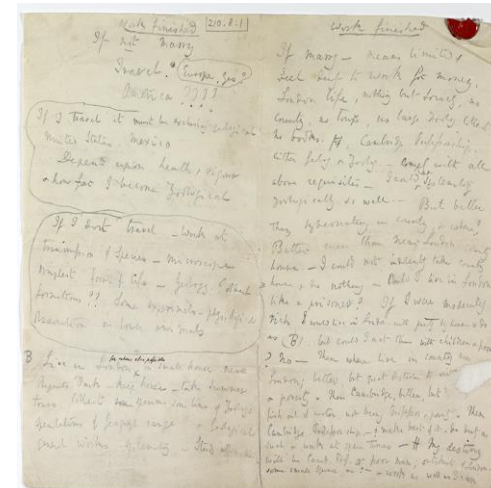 Work finished
210.8:1
If not marry
Travel. Europe, Yes?
America ????
If I travel it must be exclusively geological
United States, Mexico
Depend upon health & vigour
& how far I become Zoological
If I dont travel. — Work at
transmission of Species — Microscope
simplest forms of life — Geology.
formations?? Some experiments — physiological
observation on lower animals
B Live in London for where else possible in small house, near
Regents Park — keep horse — take Summer
tours Collect specimens some line of Zoolog:
Speculations of Geograph. range, & Geological
general works.
Work finished
If marry — means limited,
Feel duty to work for money.
London life, nothing but Society, no
country, no tours, no large Zoolog. Collect.
no books. Cambridge Professorship,
either Geolog. or Zoolog. — comply with all
above requisites — I could not systematiz
zoologically so well. — But better
than hybernating in country, & where?
Better even than near London country
house — I could not indolently take country
house & do nothing — Could I live in London
like a prisoner? If I were moderately
rich, I would live in London, with pretty big house & do
as (B), but could I act thus with children & poor
? No — Then where live in country near
London; better, but great obstacles to science
& poverty. Then Cambridge, better, but
fish out of water, not being Professor & poverty. Then
Cambridge Professorship, — & make best of it, do duty as
such & work at spare times — My destiny
will be Camb. Prof. or poor man; outskirts of London
some small Square &c: — & work as well as I can